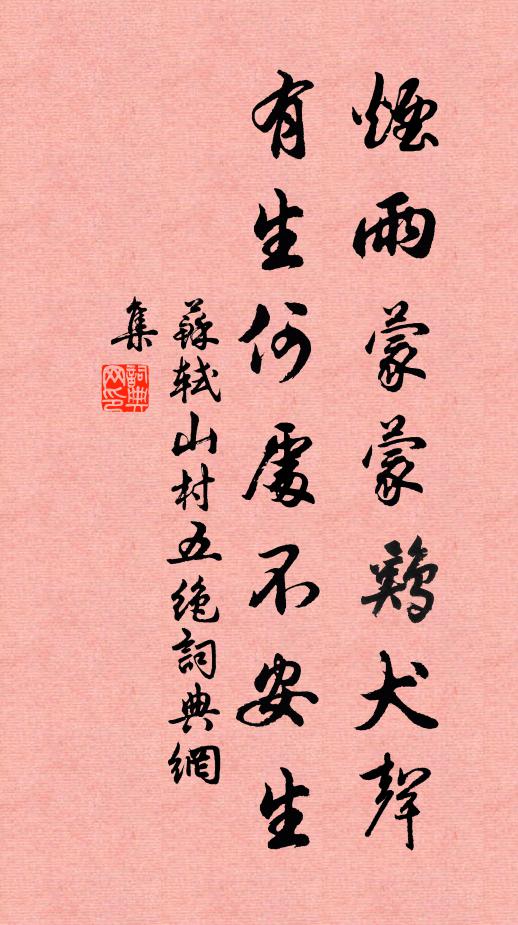 煙雨蒙蒙鷄犬聲
有生何處不安生
蘇軾山村五絕詞典網
集
詞典
网印